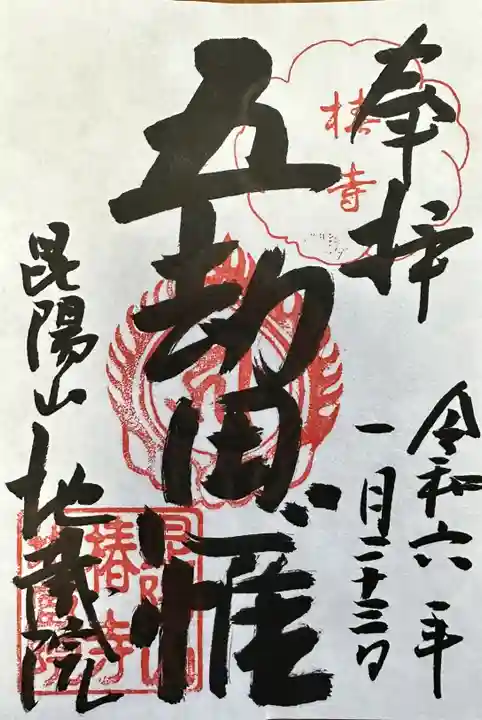 奉拝
椿寺
令和六年
一月二十三日
五劫思惟
昆陽山地蔵院
昆陽山
椿寺
地蔵院